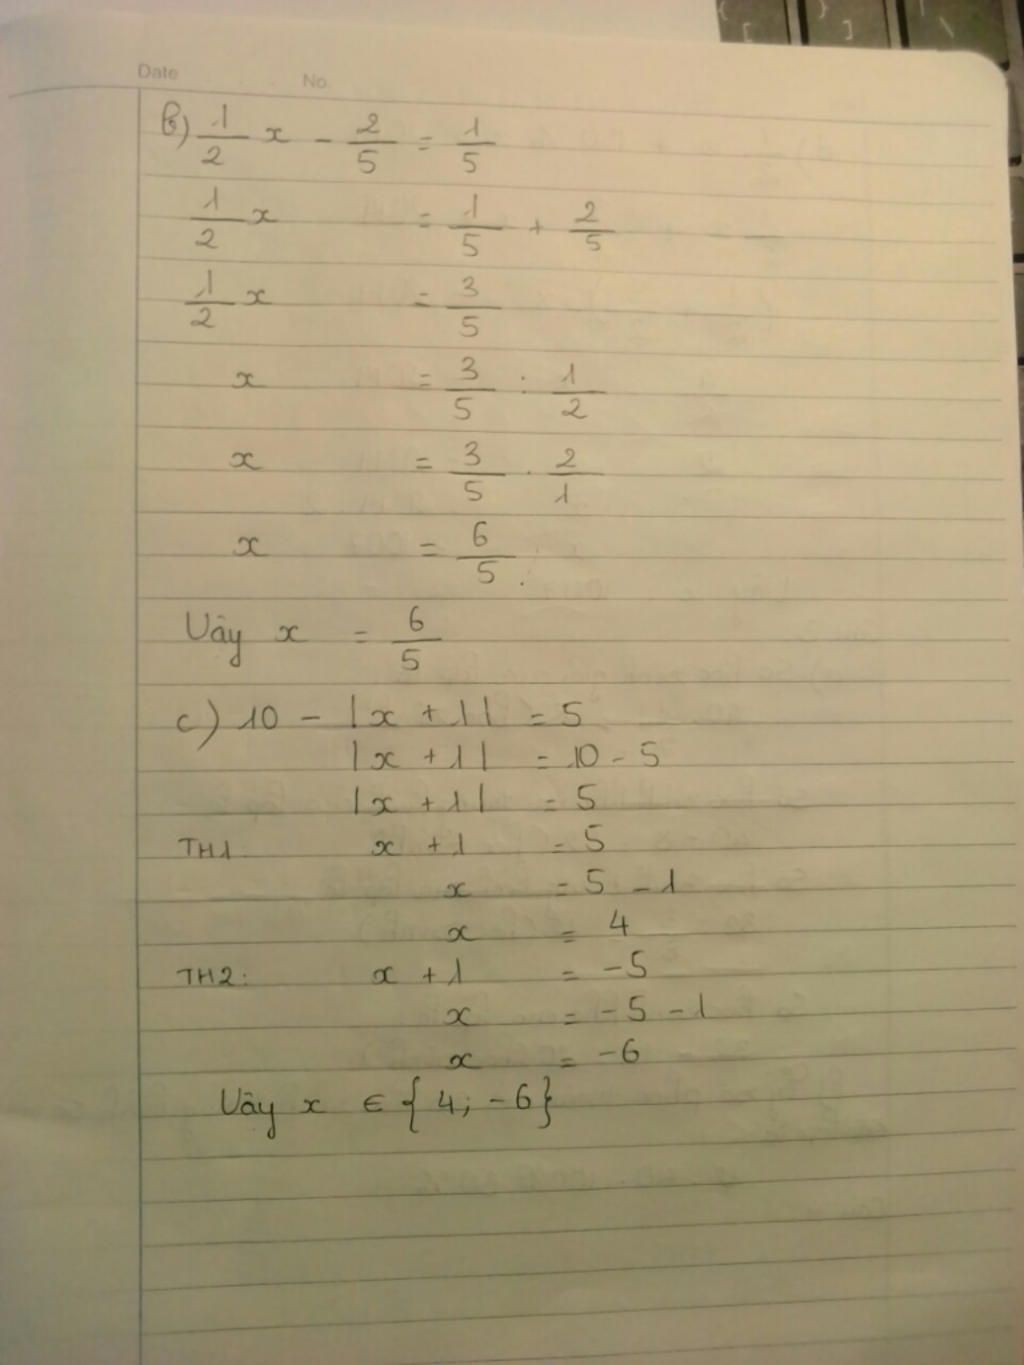 Date No.
b) 1/2 x - 2/5 = 1/5
1/2 x = 1/5 + 2/5
1/2 x = 3/5
x = 3/5 : 1/2
x = 3/5 . 2/1
x = 6/5.
Vậy x = 6/5
c) 10 - |x + 1| = 5
|x + 1| = 10 - 5
|x + 1| = 5
TH1 x + 1 = 5
x = 5 - 1
x = 4
TH2: x + 1 = -5
x = -5 - 1
x = -6
Vậy x ∈ {4; -6}